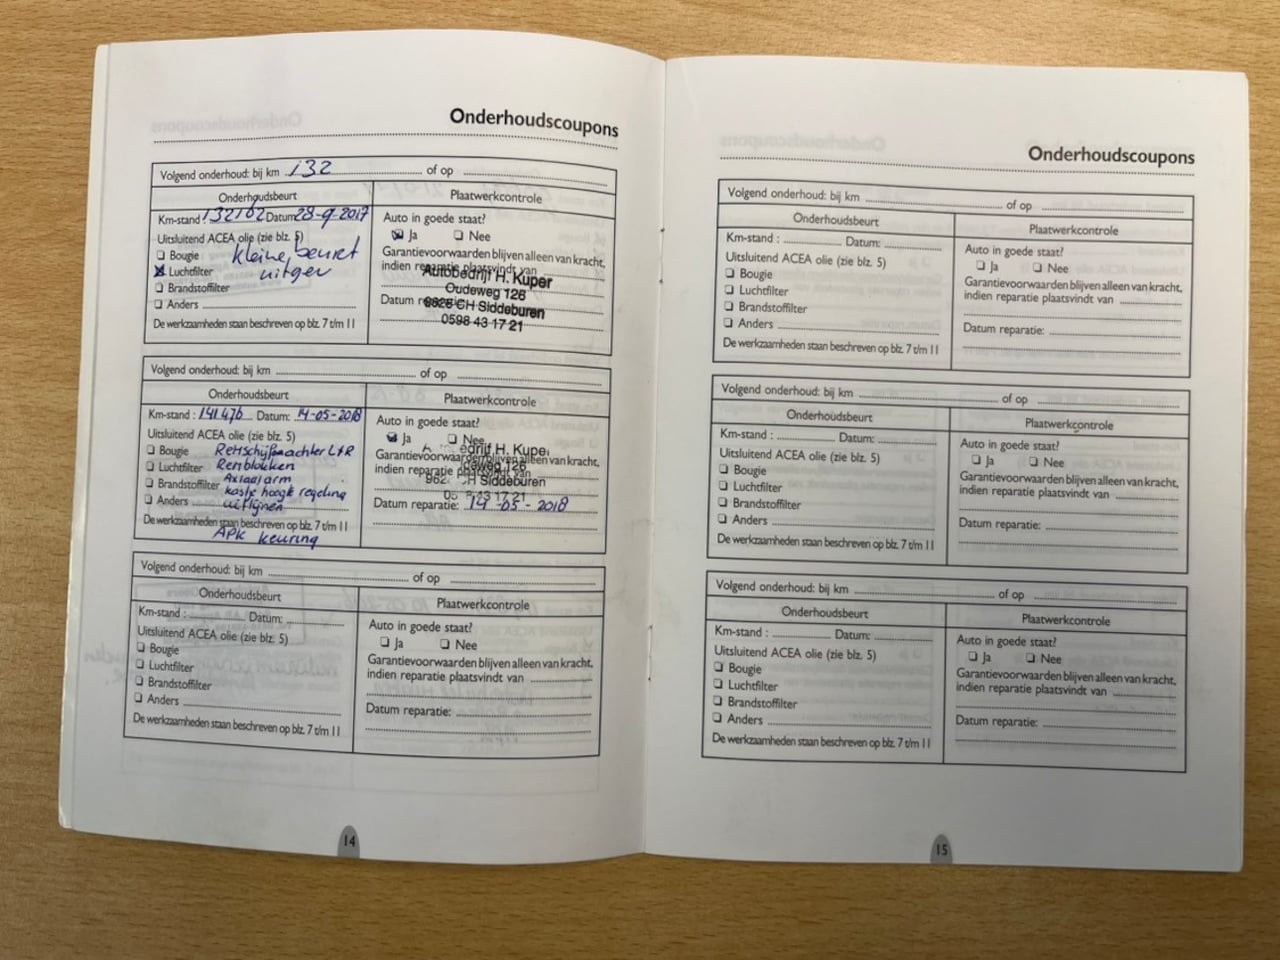 Onderhoudscoupons
Volgend onderhoud: bij km 132 of op
Onderhoudsbeurt
Plaatwerkcontrole
Km-stand 132162 Datum 28-9-2017
Uitsluitend ACEA olie (zie blz. 5)
kleine beurt
❏ Bougie
❏ Luchtfilter
❏ Brandstoffilter
❏ Anders
De werkzaamheden staan beschreven op blz. 7 t/m 11
Auto in goede staat?
❏ Ja ❏ Nee
Garantievoorwaarden blijven alleen van kracht,
indien reparatie plaatsvindt van
Autobedrijf H. Kuper
Oudeweg 126
Datum
CH Siddeburen
0598 43 17 21
Volgend onderhoud: bij km of op
Onderhoudsbeurt
Plaatwerkcontrole
Km-stand : 141.476 Datum: 14-05-2018
Uitsluitend ACEA olie (zie blz. 5)
❏ Bougie Remschijf achter L+R
❏ Luchtfilter Remblokken
❏ Brandstoffilter Axiaal arm
hoogte regeling
❏ Anders uitlijnen
De werkzaamheden staan beschreven op blz. 7 t/m 11
APK keuring
Auto in goede staat?
❏ Ja ❏ Nee
H. Kuper
Garantievoorwaarden blijven alleen van kracht,
126
indien reparatie plaatsvindt van
CH Siddeburen
43 17 21
Datum reparatie: 14-05-2018
Volgend onderhoud: bij km of op
Onderhoudsbeurt
Plaatwerkcontrole
Km-stand : Datum:
Uitsluitend ACEA olie (zie blz. 5)
❏ Bougie
❏ Luchtfilter
❏ Brandstoffilter
❏ Anders
De werkzaamheden staan beschreven op blz. 7 t/m 11
Auto in goede staat?
❏ Ja ❏ Nee
Garantievoorwaarden blijven alleen van kracht,
indien reparatie plaatsvindt van
Datum reparatie:
14
Onderhoudscoupons
Volgend onderhoud: bij km of op
Onderhoudsbeurt
Plaatwerkcontrole
Km-stand : Datum:
Uitsluitend ACEA olie (zie blz. 5)
❏ Bougie
❏ Luchtfilter
❏ Brandstoffilter
❏ Anders
De werkzaamheden staan beschreven op blz. 7 t/m 11
Auto in goede staat?
❏ Ja ❏ Nee
Garantievoorwaarden blijven alleen van kracht,
indien reparatie plaatsvindt van
Datum reparatie:
Volgend onderhoud: bij km of op
Onderhoudsbeurt
Plaatwerkcontrole
Km-stand : Datum:
Uitsluitend ACEA olie (zie blz. 5)
❏ Bougie
❏ Luchtfilter
❏ Brandstoffilter
❏ Anders
De werkzaamheden staan beschreven op blz. 7 t/m 11
Auto in goede staat?
❏ Ja ❏ Nee
Garantievoorwaarden blijven alleen van kracht,
indien reparatie plaatsvindt van
Datum reparatie:
Volgend onderhoud: bij km of op
Onderhoudsbeurt
Plaatwerkcontrole
Km-stand : Datum:
Uitsluitend ACEA olie (zie blz. 5)
❏ Bougie
❏ Luchtfilter
❏ Brandstoffilter
❏ Anders
De werkzaamheden staan beschreven op blz. 7 t/m 11
Auto in goede staat?
❏ Ja ❏ Nee
Garantievoorwaarden blijven alleen van kracht,
indien reparatie plaatsvindt van
Datum reparatie:
15